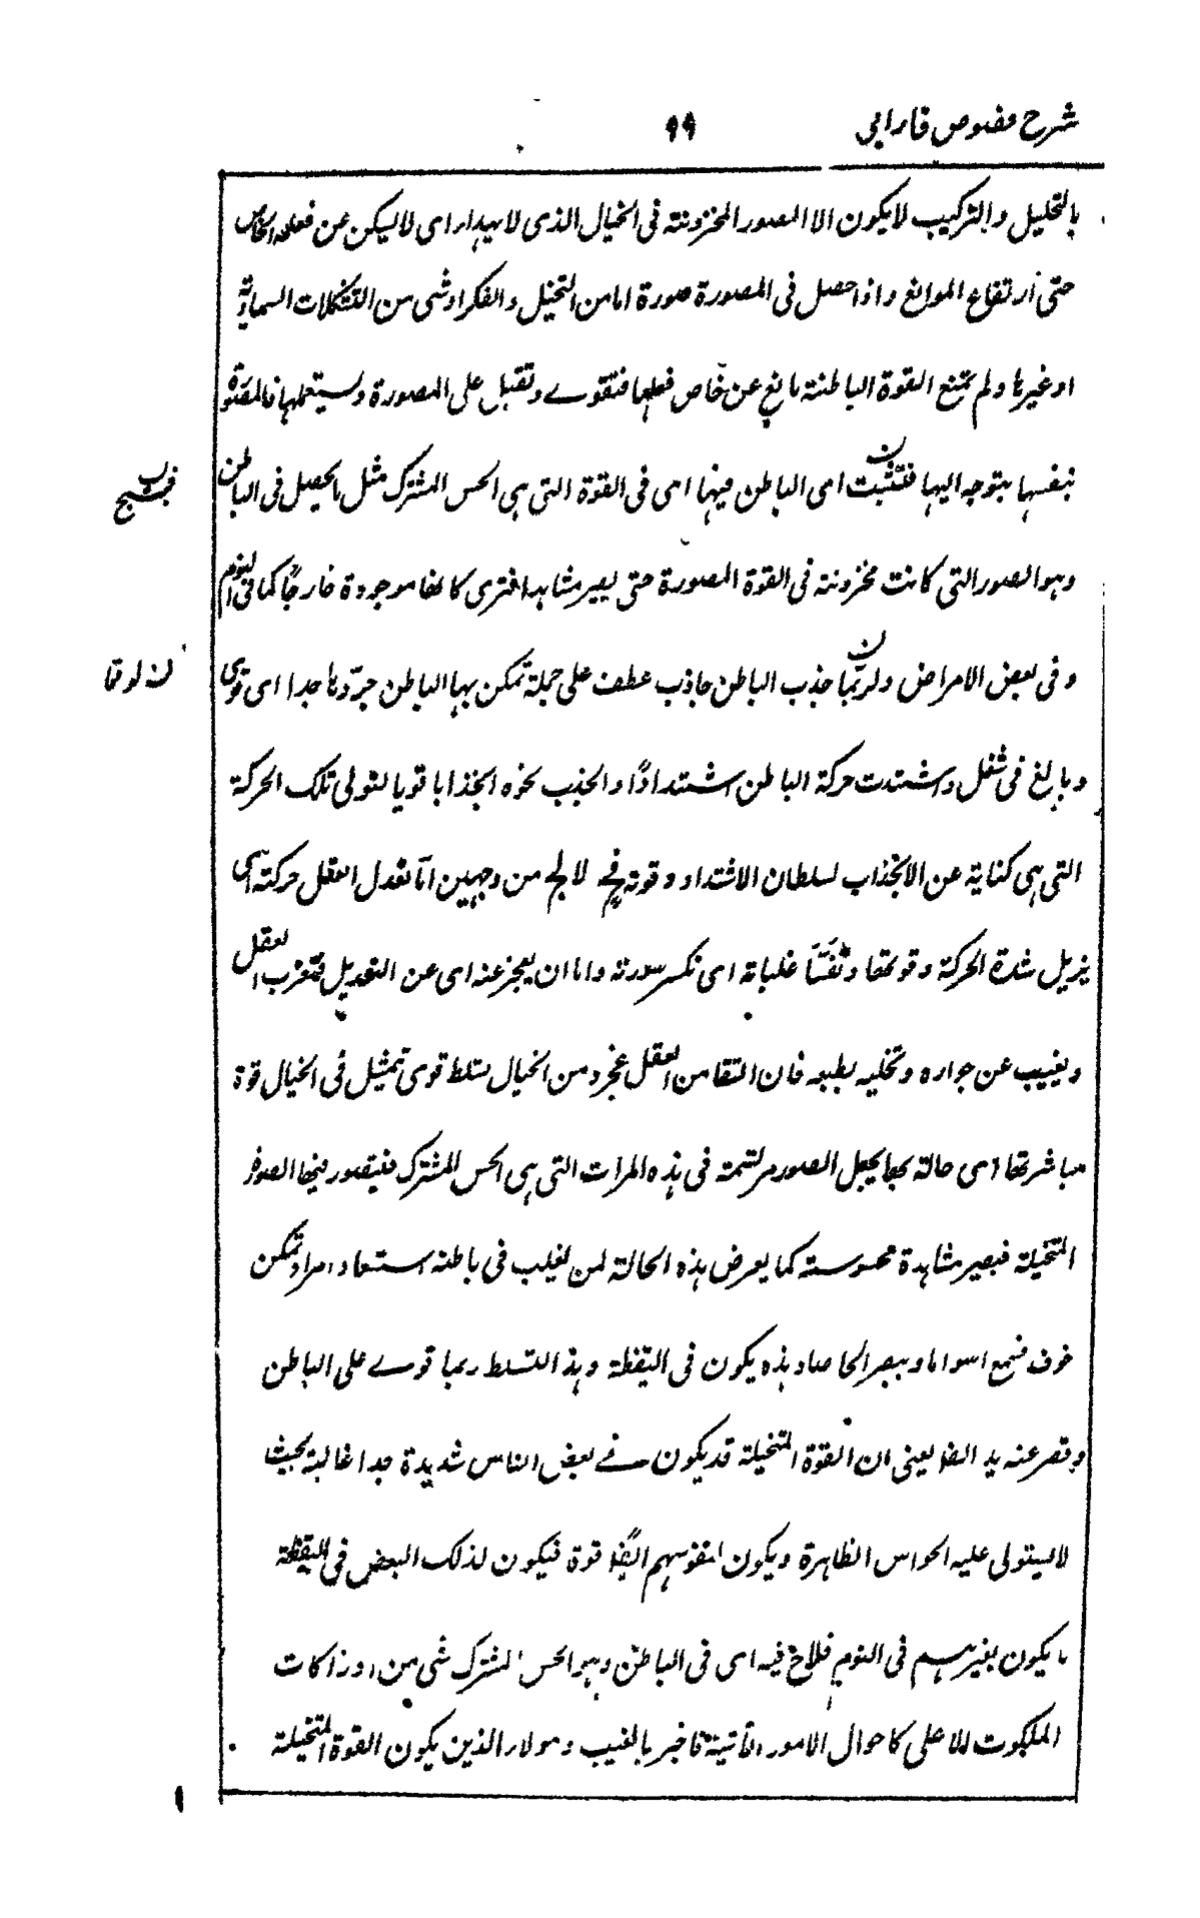 شرح فصوص فارابى
٩٩
بالتحليل والتركيب لا يكون الا الصور المخزونة فى الخيال الذى لا يهدأ اى لا ليكن عن فعله الخاص
حتى ارتفاع الموانع واذا حصل فى المصورة صورة اما من التخيل والفكر او شى من التشكلات السماوية
او غيرها ولم تمنع القوة الباطنة مانع عن خاص فعلها فتقوے وتقبل على المصورة وليستعملها فالمصورة
بنفسها يتوجه اليها فتثبت اى الباطن فيها اى فى القوة التى هى الحس المشترك مثل ما يحصل فى الباطن
فيشبح
وهو الصور التى كانت مخزونة فى القوة المصورة حتى يصير مشاهدا فترى كانها موجودة خارجًا كما فى النوم
وفى بعض الامراض ولربما جذب الباطن جاذب عطف على جملة تمكن بها الباطن جدّ وما جدا اى قوى
وبالغ فى شغل واشتدت حركة الباطن اشتدادًا وانجذب نحوه انجذابا قويا لتولى تلك الحركة
التى هى كناية عن الانجذاب لسلطان الاشتداد وقوته فح لا يخ من وجهين امّا تعدل العقل حركته اى
يزيل شدة الحركة وقوتها غلبانة اى نكسر سورته واما ان يعجز عنه اى عن التعديل فتعزب العقل
ويغيب عن جواره وتخليه بطبعه فان اتفق من العقل عجز ومن الخيال تسلط قوى تمثيل فى الخيال قوة
مباشرتها اى حالة بها يجعل الصور مرتسمة فى هذه المراٰت التى هى الحس المشترك فيتصور فيها الصور
المتخيلة فيصير مشاهدة محسوسة كما يعرض هذه الحالة لمن يغلب فى باطنه استعاد امر او تمكن
خوف فيسمع اصواتا ويبصر اشخاصا وهذه يكون فى اليقظة وهذا التسلط ربما قوے على الباطن
وقصر عنه يد الظا يعنى ان القوة المتخيلة قد يكون فے بعض الناس شديدة جدا غالبة بحيث
لا ليتولى عليه الحواس الظاهرة ويكون لنفوسهم ايضًا قوة فيكون لذلك البعض فى اليقظة
ما يكون لغيرهم فى النوم فلاح فيه اى فى الباطن وهو الحس المشترك شى من
الملكوت الاعلى كاحوال الامور الاٰتية فاخبر بالغيب وهولاء الذين يكون القوة المتخيلة